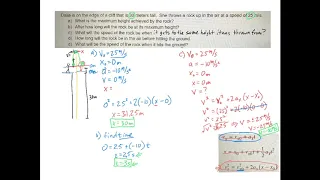 is on the edge of a cliff that is 30 meters tall. She throws a rock up in the air at a speed of 25 m/s.
a) What is the maximum height achieved by the rock?
b) After how long will the rock be at its maximum height?
c) What will the speed of the rock be when it gets to the same height it was thrown from?
d) How long will the rock be in the air before hitting the ground?
e) What will be the speed of the rock when it hits the ground?
a) V₀=25m/s
X₀=0m
a=-10m/s²
V=0m/s
x=
0²=25²+2(-10)(x-0)
b) find time
0=25+(-10)t
c) V₀=25m/s
X₀=0m
a=-10m/s²
X=0m
V=?
V²=V₀²+2aₓ(x-x₀)
V²=25²
V=±25m/s